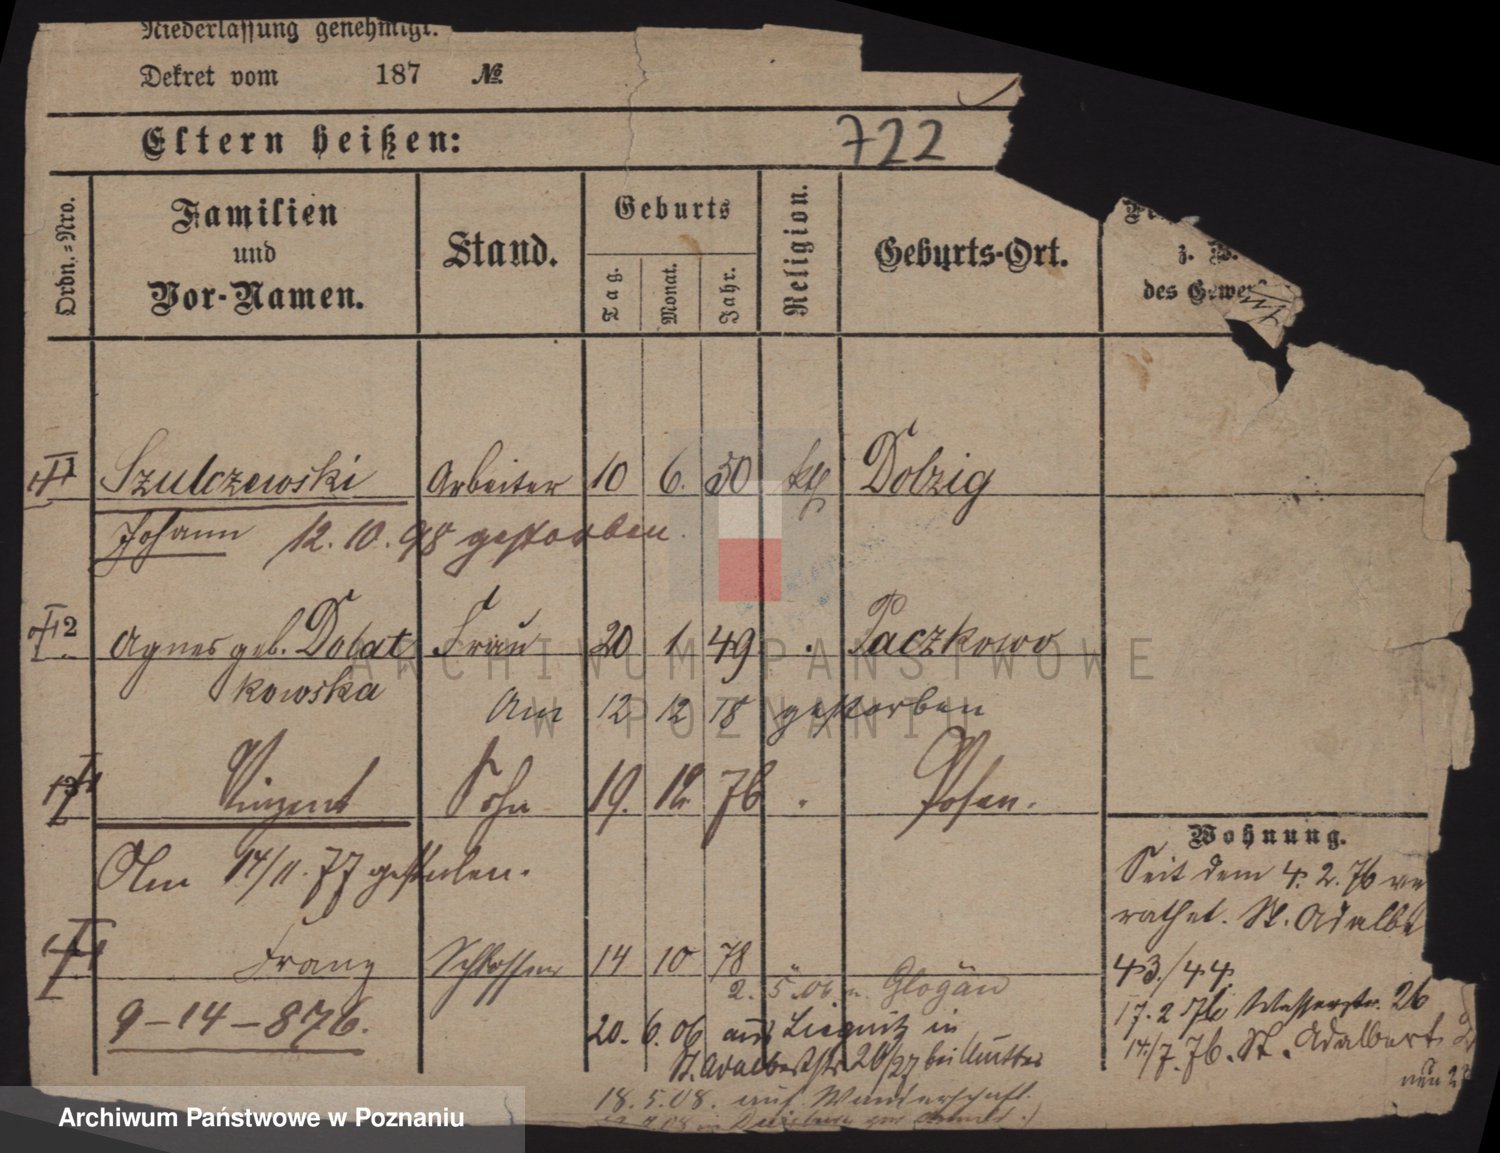 Niederlassung genehmigt.
Dekret vom 187 №
Eltern heißen:
722
Ordn.=Nro.
Familien
und
Vor-Namen.
Stand.
Geburts
Tag.
Monat.
Jahr.
Religion.
Geburts-Ort.
z. B.
des Gewer
1 Szulczewski Arbeiter 10 6. 50 kth Dolzig
Johann 12.10.98 gestorben.
2 Agnes geb. Dobat Frau 20 1. 49 Paczkowo
kowska
Am 12 12 18 gestorben
Vinzent Sohn 19. 12. 76 Posen.
Am 14/11. 77 gestorben.
Franz Schlosser 14 10 78
2. 5. 06. n. Glogau
9-14-876.
20. 6. 06 aus Liegnitz in
St. Adalbertstr 26/27 bei Mutter
18.5.08. auf Wanderschaft.
Wohnung.
Seit dem 4. 2. 76 ve
rathet. St. Adalbe
43/44.
17. 2 76 Wasserstr. 26
14/7. 76. St. Adalbert
ARCHIWUM PAŃSTWOWE
W POZNANIU
Archiwum Państwowe w Poznaniu